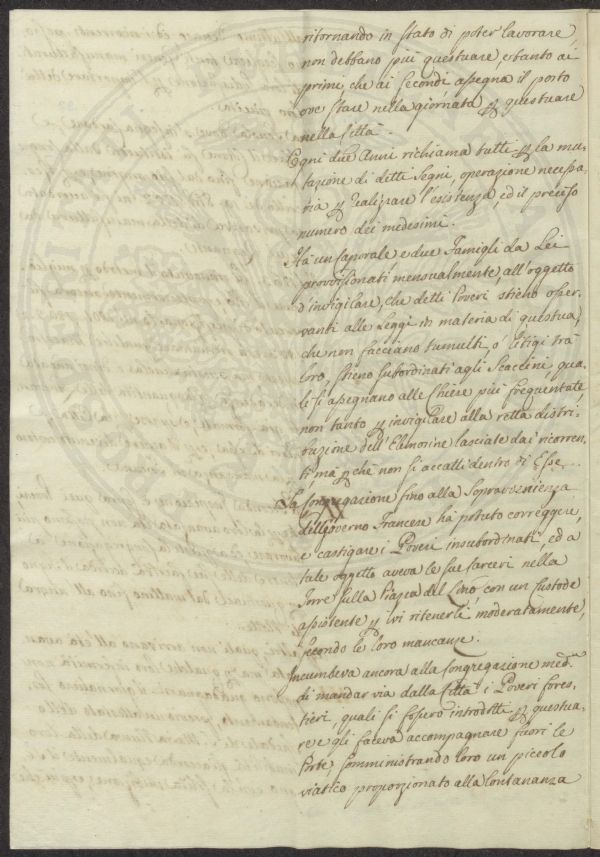 ritornando in stato di poter lavorare,
non debbano più questuare, e tanto ai
primi, che ai secondi assegna il posto
ove stare nella giornata p questuare
nella Città.
Ogni due Anni richiama tutti p la mu-
tazione di detti Segni, operazione necessa-
ria p realizzare l'esistenza, ed il preciso
numero dei medesimi.
Ha un Caporale e due Famigli da Lei
provisionati mensualmente, all'oggetto
d'invigilare, che detti Poveri stieno osser-
vanti alle Leggi in materia di questua,
che non facciano tumulti o' litigi trà
loro, stieno subordinati agli Scaccini, qua-
li si assegnano alle Chiese più frequentate,
non tanto p invigilare alla retta distri-
buzione dell'Elemosine lasciate dai ricorren-
ti, ma p chè non si accatti dentro di Esse.
La Congregazione fino alla Sopravenienza
del Governo Francese hà potuto correggere,
e castigare i Poveri insubordinati, ed a
tale oggetto aveva le sue Carceri nella
Torre sulla piazza del Lino, con un Custode
assistente p ivi ritenerli moderatamente,
secondo le loro mancanze.
Incumbeva ancora alla Congregazione med.
di mandar via dalla Città i Poveri fores-
tieri, quali si fossero introdotti p questua-
re e gli faceva accompagnare fuori le
Porte, somministrando loro un piccolo
viatico proporzionato alla lontananza